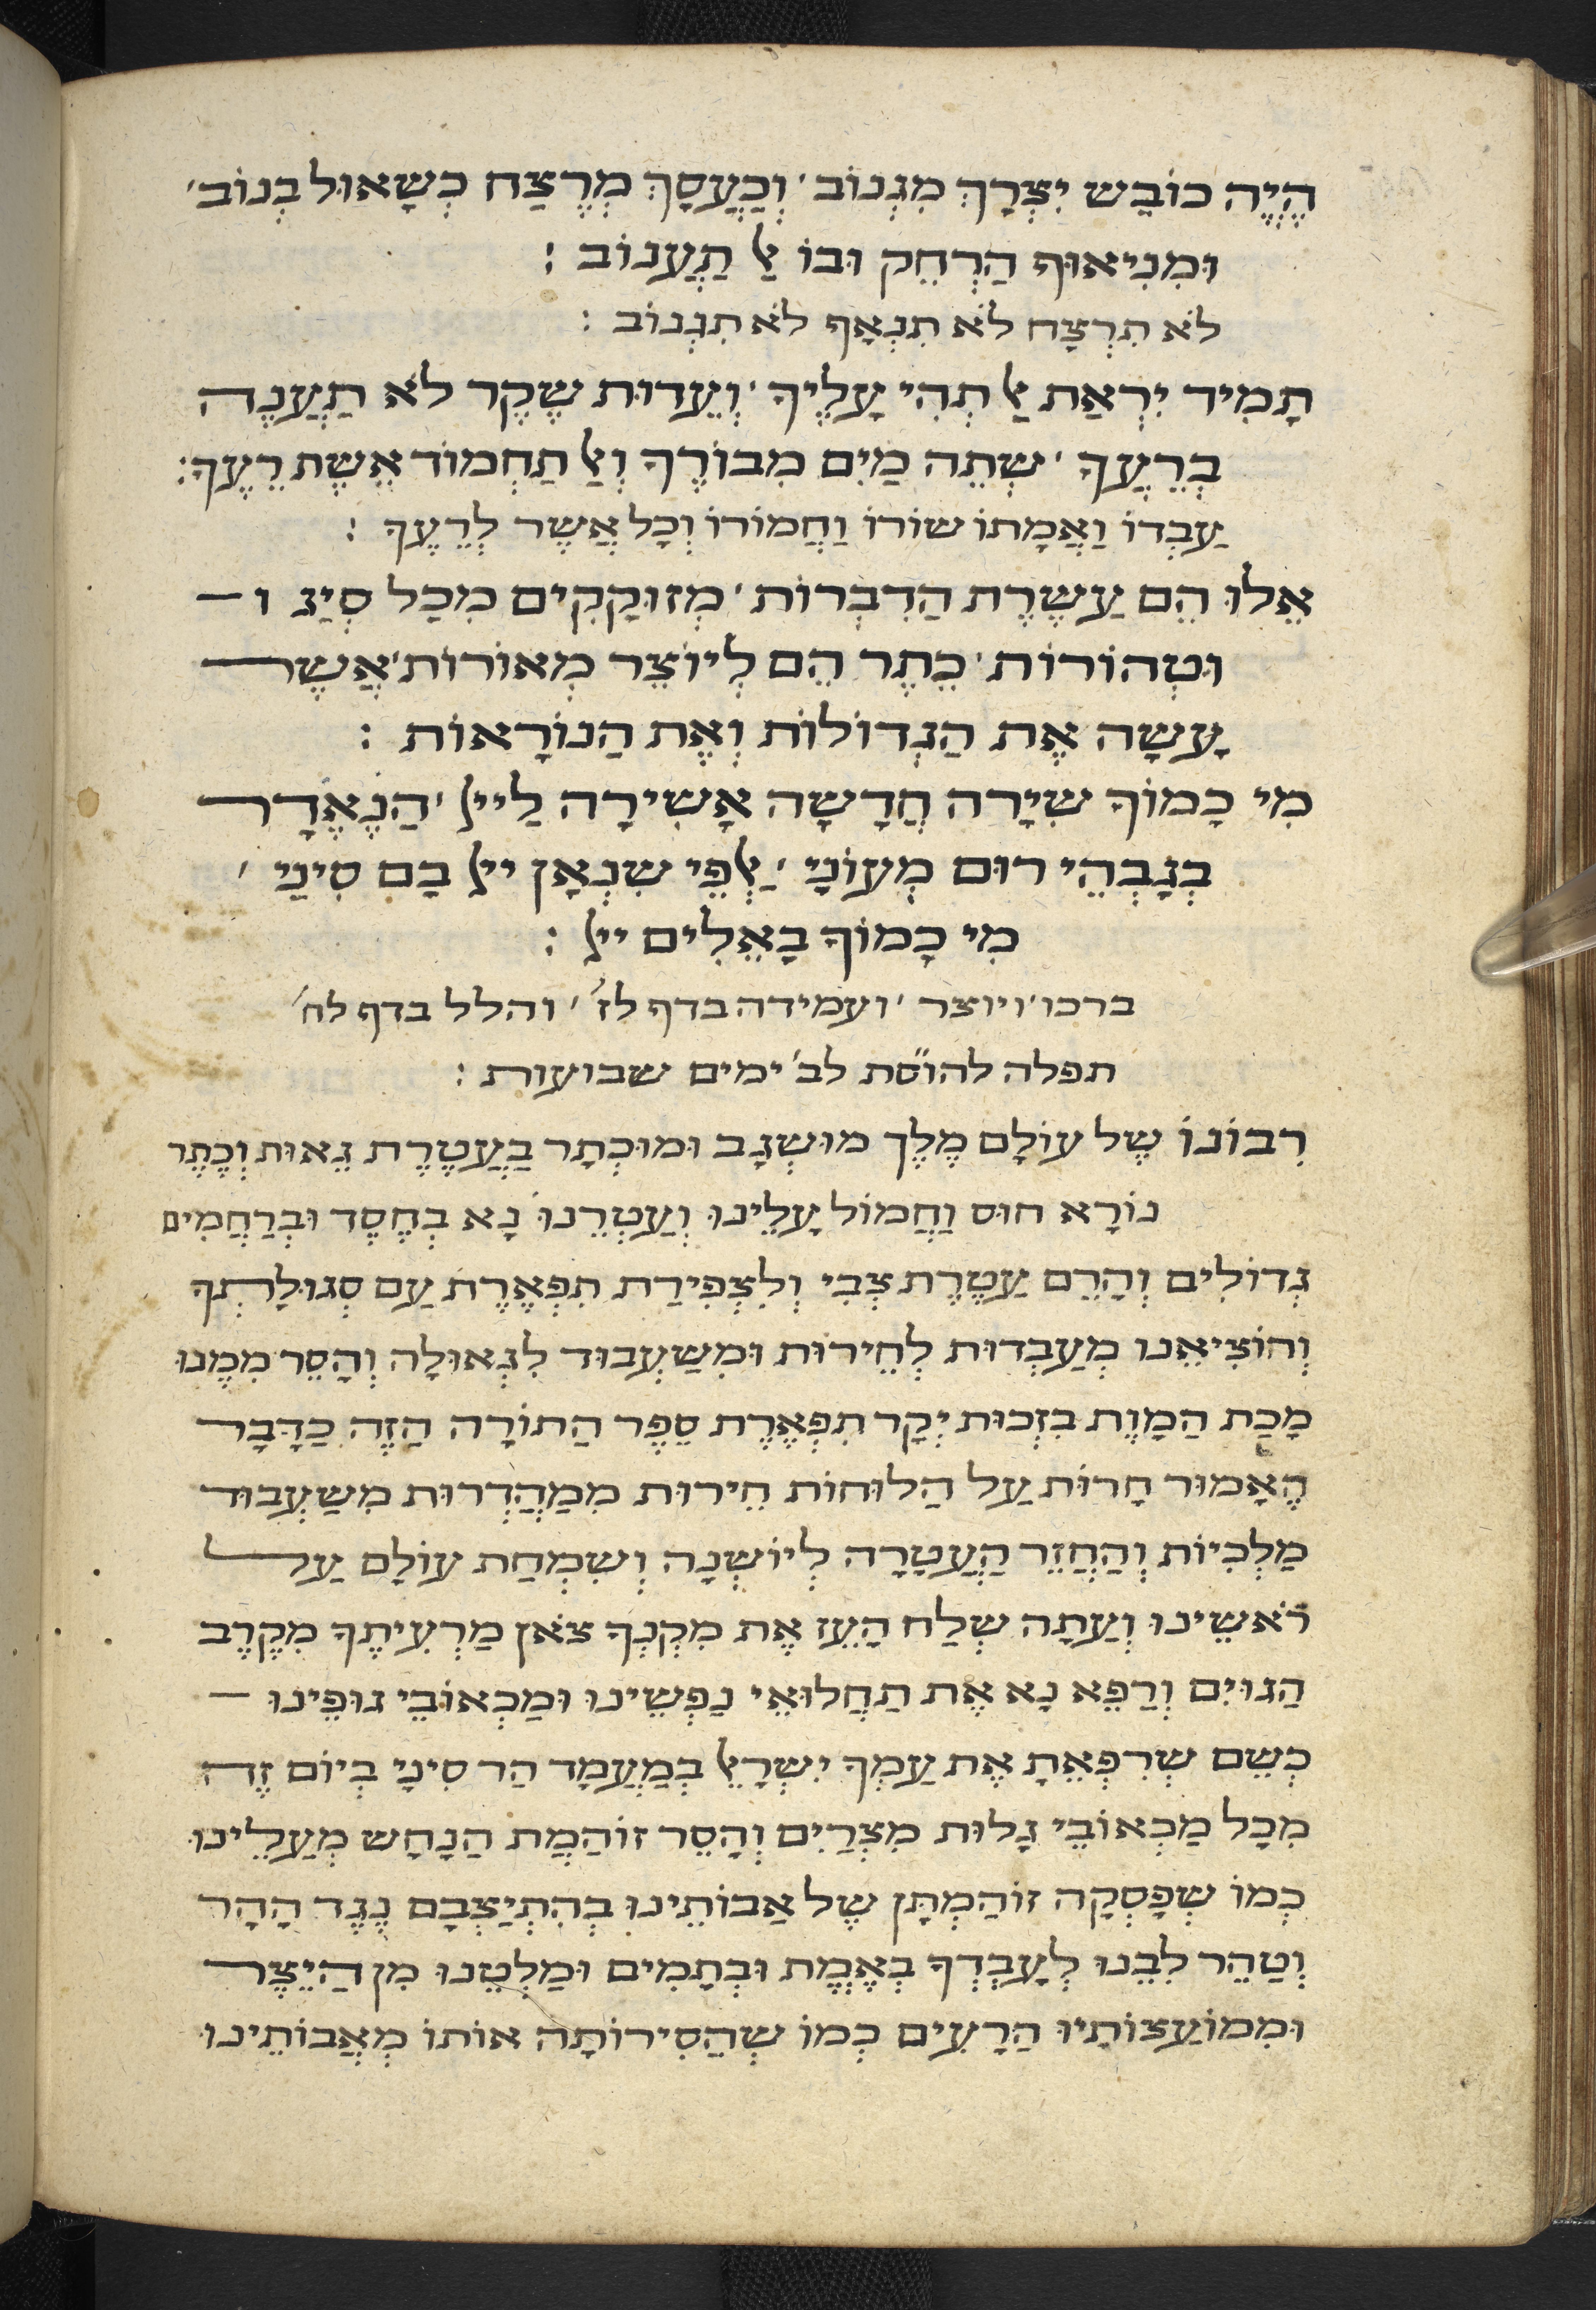 הֱיֵה כּוֹבֵשׁ יִצְרָךְ מִגְנוֹב׳ וְכַעֲסָךְ מְרֻצַח כְּשָׁאוּל בְּנוֹב׳
וּמִנִיאוּף הַרְחֵק וּבוֹ אַל תַּעֲנוֹב :
לֹא תִרְצָח לֹא תִנְאָף לֹא תִגְנוֹב :
תָּמִיד יִרְאַת אֵל תְּהִי עָלֶיךָ ׳ וְעֵדוּת שֶׁקֶר לֹא תַעֲנֶה
בְּרֵעֲךָ ׳ שְׁתֵה מַיִם מִבּוֹרֶךָ וְאַל תַּחְמוֹד אֵשֶׁת רֵעֶךָ :
עַבְדּוֹ וַאֲמָתוֹ שׁוֹרוֹ וַחֲמוֹרוֹ וְכָל אֲשֶׁר לְרֵעֶךָ :
אֵלוּ הֵם עֲשֶׂרֶת הַדִּבְּרוֹת ׳ מְזוּקָקִים מִכָּל סִיג ו —
וּטְהוֹרוֹת ׳ כֶּתֶר הֵם לְיוֹצֵר מְאוֹרוֹת ׳ אֲשֶׁר
עָשָׂה אֶת הַגְּדוֹלוֹת וְאֶת הַנוֹרָאוֹת :
מִי כָמוֹךָ שִׁירָה חֲדָשָׁה אָשִׁירָה לַייָ ׳ הַנֶּאְדָּר
בְּגָבְהֵי רוּם מְעוֹנָי ׳ אַלְפֵי שִׁנְאָן ייָ בָם סִינַי ׳
מִי כָמוֹךָ בָּאֵלִים ייָ :
ברכו ׳ ויוצר ׳ ועמידה בדף לז׳ ׳ והלל בדף לח׳
תפלה להו״סת לב׳ ימים שבועות :
רִבּוֹנוֹ שֶׁל עוֹלָם מֶלֶךְ מוּשְׂגָב וּמוּכְתָּר בַּעֲטֶרֶת גֵּאוּת וְכֶתֶר
נוֹרָא חוּס וַחֲמוֹל עָלֵינוּ וְעַטְרֵנוּ נָא בְּחֶסֶד וּבְרַחֲמִים
גְּדוֹלִים וְהָרֵם עֲטֶרֶת צְבִי וְלִצְפִירַת תִּפְאֶרֶת עַם סְגוּלָתְךָ
וְהוֹצִיאֵנוּ מֵעַבְדוּת לְחֵירוּת וּמִשַׁעְבּוּד לִגְאוּלָה וְהָסֵר מִמֶּנוּ
מַכַּת הַמָּוֶת בִּזְכוּת יְקָר תִּפְאֶרֶת סֵפֶר הַתּוֹרָה הַזֶּה כַּדָּבָר
הָאָמוּר חָרוּת עַל הַלּוּחוֹת חֵירוּת מִמַהֲדְרוּת מִשַׁעְבּוּד
מַלְכִיּוֹת וְהַחֲזֵר הָעֲטָרָה לְיוֹשְׁנָהּ וְשִׂמְחַת עוֹלָם עַל
רֹאשֵׁינוּ וְעַתָּה שְׁלַח הָעֵז אֶת מִקְנְךָ צֹאן מַרְעִיתֶךָ מִקֶּרֶב
הַגּוֹיִם וְרַפֵּא נָא אֶת תַּחֲלוּאֵי נַפְשֵׁינוּ וּמַכְאוֹבֵי גוּפֵינוּ —
כְּשֵׁם שֶׁרִפֵּאתָ אֶת עַמְּךָ יִשְׂרָאֵל בְּמַעֲמַד הַר סִינָי בְּיוֹם זֶה
מִכָּל מַכְאוֹבֵי גָלוּת מִצְרַיִם וְהָסֵר זוֹהֲמַת הַנָּחָשׁ מֵעָלֵינוּ
כְּמוֹ שֶׁפָּסְקָה זוֹהֲמָתָן שֶׁל אֲבוֹתֵינוּ בְּהִתְיַצְּבָם נֶגֶד הָהָר
וְטַהֵר לִבֵּנוּ לְעָבְדְּךָ בֶּאֱמֶת וּבְתָמִים וּמַלְּטֵנוּ מִן הַיֵּצֶר
וּמִמּוֹעֲצוֹתָיו הָרָעִים כְּמוֹ שֶׁהֲסִירוֹתָה אוֹתוֹ מֵאֲבוֹתֵינוּ